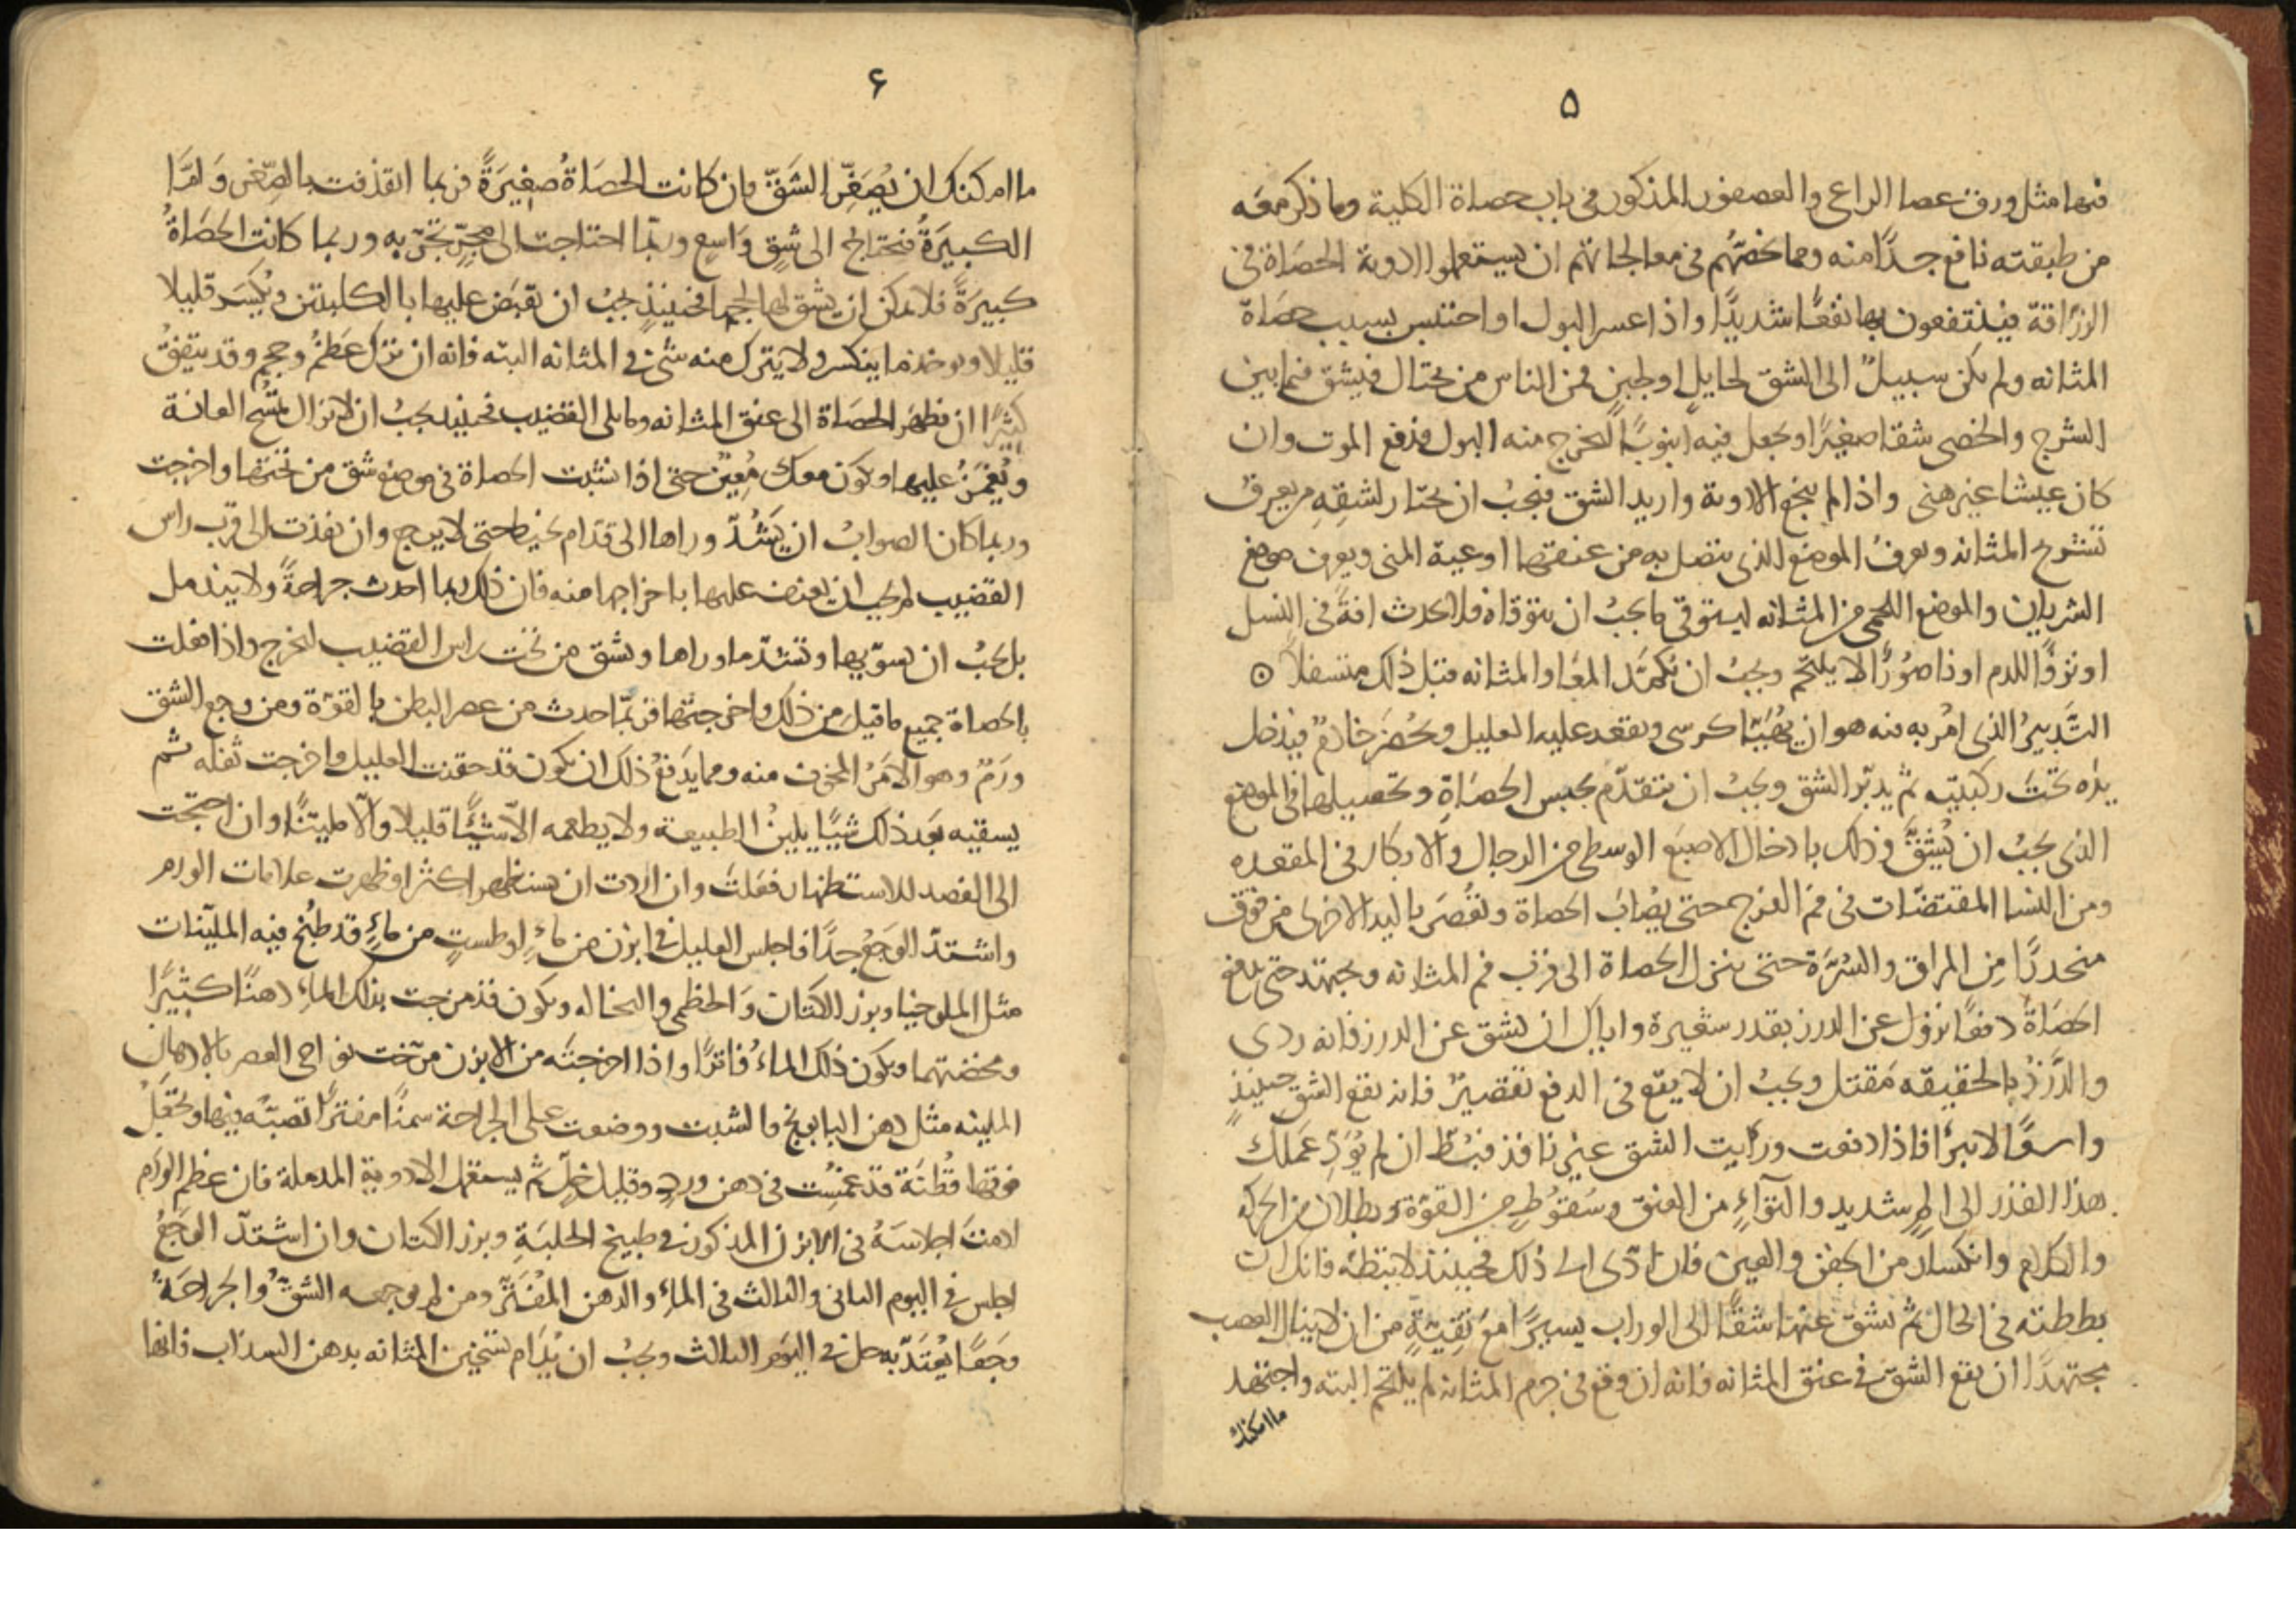 ٥
فيها مثل ورق عصا الراعى والعصفور المذكور فى باب حصاة الكلية وما ذكر معه
من طبقته نافع جدًا منه ومما يخصّهم فى معالجاتهم ان يستعملوا الادوية الحصَاة فى
الزرّاقة فينتفعون بها نفعًا شديدًا واذا عسر البول او احتبس بسبب حصَاة
المثانه ولم يكن سبيلٌ الى الشق لحايلٍ او لجبنٍ فمن الناس من يحتال فيشق فيما بين
الشرج والخصى شقا صغيرًا ويجعل فيه انبوبًا ليخرج منه البول فيدفع الموت وان
كان عيشا غير هنى واذا لم ينجع الادوية واريد الشق فيجبُ ان يختار لشقهِ من يعرفُ
تشريح المثانه ويعرفُ الموضع الذى يتصل به من عنقها اوعية المنى ويعرف موضع
الشريان والموضع اللحمى من المثانه ليتوقى ما يجبُ ان يتوقاه فلا يحدث افة فى النسل
او نزفًا للدم او ناصُورًا لا يلتحم ويجبُ ان تكمّد المعَا والمثانه قبل ذلك متسفلاً
التَّدبيرُ الذى امُر به منه هو ان يُهيّئا كرسى ويقعد عليه العليل ويحُضر خادمٌ فيدخل
يده تحتَ ركبتيه ثم يدبّر الشق ويجبُ ان تتقدّم بجبس الحصَاةِ وتحصيلها فى الموضع
الذى يجبُ ان يُشقَّ وذلك بادخال الاصبَع الوسطى من الرجال والابكار فى المقعده
ومن النسا المقتضّات فى فم الفرج حتى يصُابَ الحصاة وتعُصَر باليد الاخرى من فوق
منحدرًا مِن المراق والسُرّة حتى ينزل الحصاة الى قرب فم المثانه ويجتهد حتى يدفع
الحصَاةَ دفعًا نزول عن الدرز بقدر شعيرة واياك ان يشق عن الدرز فانه ردى
والدَّرزُ بالحقيقه مَقتل ويجبُ ان لا يقع فى الدفع تقصيرٌ فانه يقع الشق حينيذٍ
واسعًا لا يبرأ فاذا دفعت ورأيت الشق غير نافذ فبُطّ ان لم يؤدِّ عَملك
هذا القدر الى المٍ شديدٍ والتوآءٍ من العنق وسُقوُطٍ من القوّة وبطلان من الحركه
والكلام وانكسَار من الجفن والعين فان ادّى الى ذلك فحينيذ لا تبطّه فانك ان
بططته فى الحال ثم تشق عنها شقًّا الى الوراب يسيرًا مَع تقيّةٍ من ان لا ينال العصب
مجتهدًا ان يقع الشقّ فى عنق المثانه فانه ان وقع فى جرم المثانه لم يلتحم البته واجتهد
ما امكنك
۶
ما امكنك ان يُصَغّرِ الشَقّ فان كانت الحصَاةُ صغيرَةً فربما انقذفت بالصّغر وَامّا
الكبيرَةُ فتحتاج الى شقٍ وَاسعٍ وربّما احتاجت الى مجرٍّ تجرّ به وربما كانت الحصَاةُ
كبيرَةً فلا يمكن ان يشق لها لحجمها فحينيذٍ يجبُ ان تقبَض عليها بالكلبتين ويُكسَر قليلا
قليلا ويوخذ ما ينكسر ولا يترك منه شئ فى المثانه البته فانه ان ترك عَظُم وحجم وقد يتفقُ
كثيرًا ان يظهر الحصَاة الى عنق المثانه وما يلى القضيب فحينيذ يجبُ ان لا يزال يمسَح العانة
ويُغمَزُ عليها ويكوَن معك مُعينٌ حتى اذا نشبت الحصاة فى موضع شق من تحتها واخرجت
وربما كان الصوابُ ان يَشُدّ وراها الى قدّام بخيط حتى لا يرجع وان نفذت الى قرب راس
القضيب لم يجب ان يعنف عليها باخراجها منه فان ذلك ربما احدث جراحةً ولا يندمل
بل يجبُ ان تسوّيها وتشدّ ما وراها وتشق من تحت راس القضيب ليخرج واذا فعلت
بالحصاة جميع ما قيل من ذلك واخرجتها فربّما حدث من عصر البطن بالقوّة ومن وجع الشق
ورَمٌ وهو الامَرُ المخوف منه ومما يدَفعُ ذلك ان يكون قد حقنت العليل واخرجت ثفله ثم
يسقيه بَعد ذلك شيًا يلينُ الطبيعة ولا يطعمه الاّ شيئًا قليلا وَالاّ ملينًا وان احتجت
الى الفصد للاستظهار فعَلتَ وان اردت ان يستظهر اكثر او ظهرت علامات الورم
واشتدّ الوَجَعُ جدًا فاجلس العليل فى ابزن من مآءٍ او طستٍ من مآءٍ قد طُبخ فيه المليّنات
مثل الملوخيا وبزر الكتان وَالخطمى والنخاله ويكون قد مزجت بذلك المآء دهنًا كثيرًا
ومخضتهما ويكون ذلك المآءُ فاترًا واذا اخرجتَه من الابزن مرّخت نواحى العصر بالادهان
الملينه مثل دهن البابونج والشبت ووضعت على الجراحة سمنًا مفترًا تصبّه فيها ويجعَلُ
فوقها قُطنَة قد غمسُت فى دهن وردٍ وقليل خلٍ ثم يستعمل الادوية المدملة فان عظم الورَم
ادمتَ اجلاسَهُ فى الابزن المذكور فى طبيخ الحلبَةِ وبزر الكتان وان اشتدّ الوَجَعُ
اجلس فى اليوم الثانى والثالث فى المآء والدهن المُفَتّر ومن لم يوجعه الشقّ والجراحَة
وجَعًا يُعتَدّ به حل فى اليوم الثالث ويجبُ ان يُدَام تسخين المثانه بدهن السذاب فانها